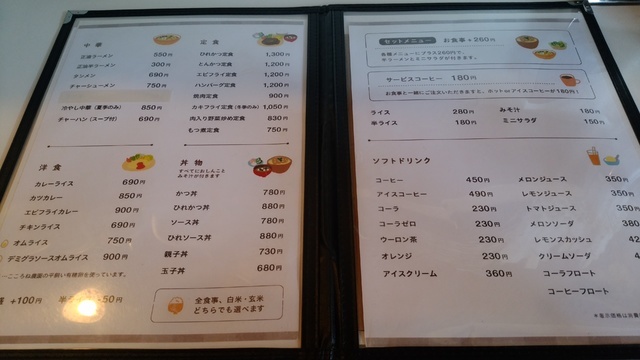 中華
正油ラーメン 550円
300円
タンメン 690円
チャーシューメン 750円
冷やし中華(夏季のみ) 850円
チャーハン(スープ付) 690円
定食
ひれかつ定食 1,300円
とんかつ定食 1,200円
エビフライ定食 1,200円
ハンバーグ定食 1,200円
焼肉定食 900円
カキフライ定食(冬季のみ) 1,050円
肉入り野菜炒め定食 830円
もつ煮定食 750円
洋食
カレーライス 690円
カツカレー 850円
エビフライカレー 900円
チキンライス 690円
オムライス 750円
デミグラソースオムライス 900円
+100円
-50円
丼物
すべてにおしんこと
みそ汁が付きます
かつ丼 780円
ひれかつ丼 880円
ソース丼 780円
ひれソース丼 880円
親子丼 730円
玉子丼 680円
全食事、白米・玄米
どちらでも選べます
セットメニュー お食事+260円
各種メニューにプラス260円で、
半ラーメンとミニサラダが付きます。
サービスコーヒー 180円
お食事と一緒にご注文いただきますと、ホットorアイスコーヒーが180円!
ライス 280円
半ライス 180円
みそ汁 180円
ミニサラダ 150円
ソフトドリンク
コーヒー 450円
アイスコーヒー 490円
コーラ 230円
コーラゼロ 230円
ウーロン茶 230円
オレンジ 230円
アイスクリーム 360円
メロンジュース 350円
レモンジュース 350
トマトジュース 350
メロンソーダ 380
レモンスカッシュ 42
クリームソーダ
コーラフロート
コーヒーフロート